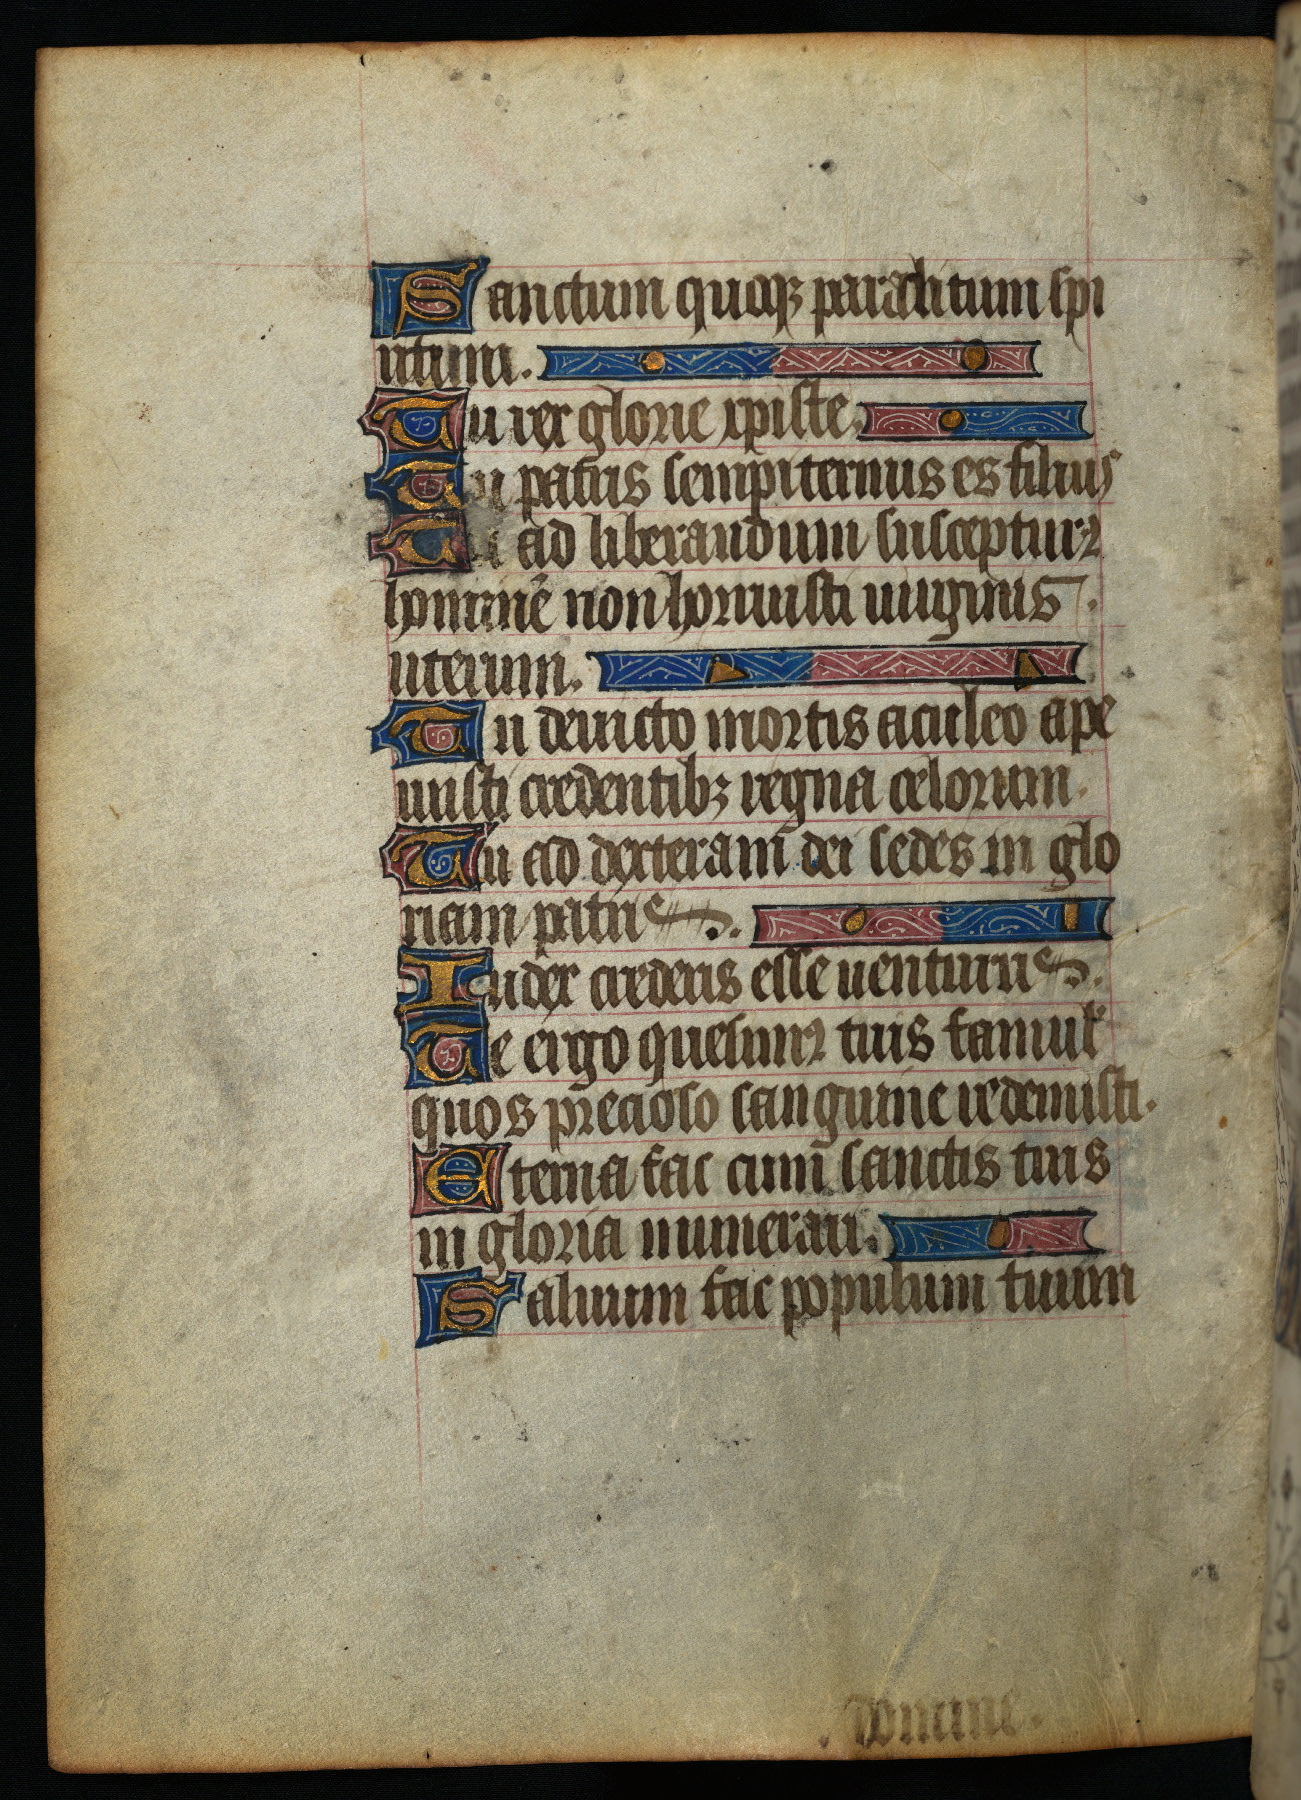 Sanctum quoqꝫ paraclitum spi
ritum.
Tu rex glorie xpiste.
Tu patris sempiternus es filius
Tu ad liberandum suscepturꝰ
hominē non horruisti uirginis
uterum.
Tu deuicto mortis aculeo ape
ruisti credentibꝫ regna celorum.
Tu ad dexteram dei sedes in glo
riam patris.
Iudex crederis esse uenturus.
Te ergo quesumꝰ tuis famul'
quos precioso sanguine redemisti.
Eterna fac cum sanctis tuis
in gloria numerari.
Saluum fac populum tuum
. domine .